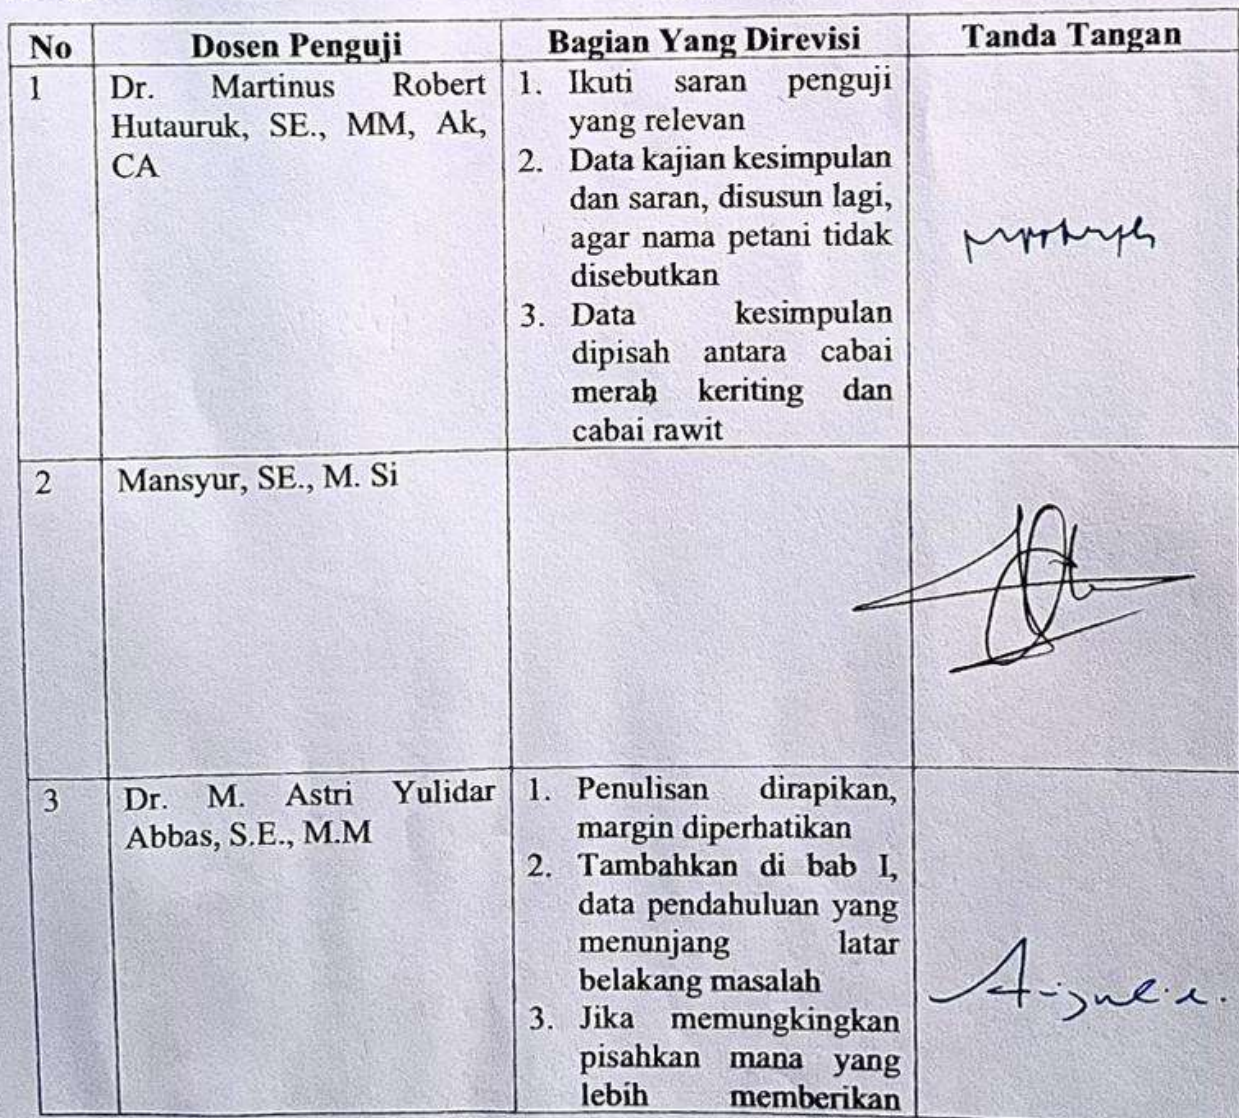 No Dosen Penguji Bagian Yang Direvisi Tanda Tangan
1 Dr. Martinus Robert
Hutauruk, SE., MM, Ak,
CA
1. Ikuti saran penguji
yang relevan
2. Data kajian kesimpulan
dan saran, disusun lagi,
agar nama petani tidak
disebutkan
3. Data kesimpulan
dipisah antara cabai
merah keriting dan
cabai rawit
2 Mansyur, SE., M. Si
3 Dr. M. Astri Yulidar
Abbas, S.E., M.M
1. Penulisan dirapikan,
margin diperhatikan
2. Tambahkan di bab I,
data pendahuluan yang
menunjang latar
belakang masalah
3. Jika memungkingkan
pisahkan mana yang
lebih memberikan